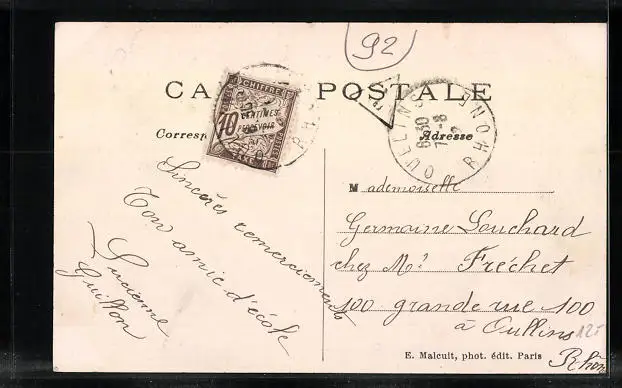 92
CARTE POSTALE
Corresp
Adresse
CHIFFRE
10
CENTIMES
A PERCEVOIR
TAXE
T
OULLINS
RHONE
6-30
7-8
Mademoiselle
Germaine Souchard
chez Mr Fréchet
100 grande rue 100
à Oullins
Rhône
12F
Sincères remerciements
Ton amie d'école
Lucienne
Guillon
E. Malcuit, phot. édit. Paris